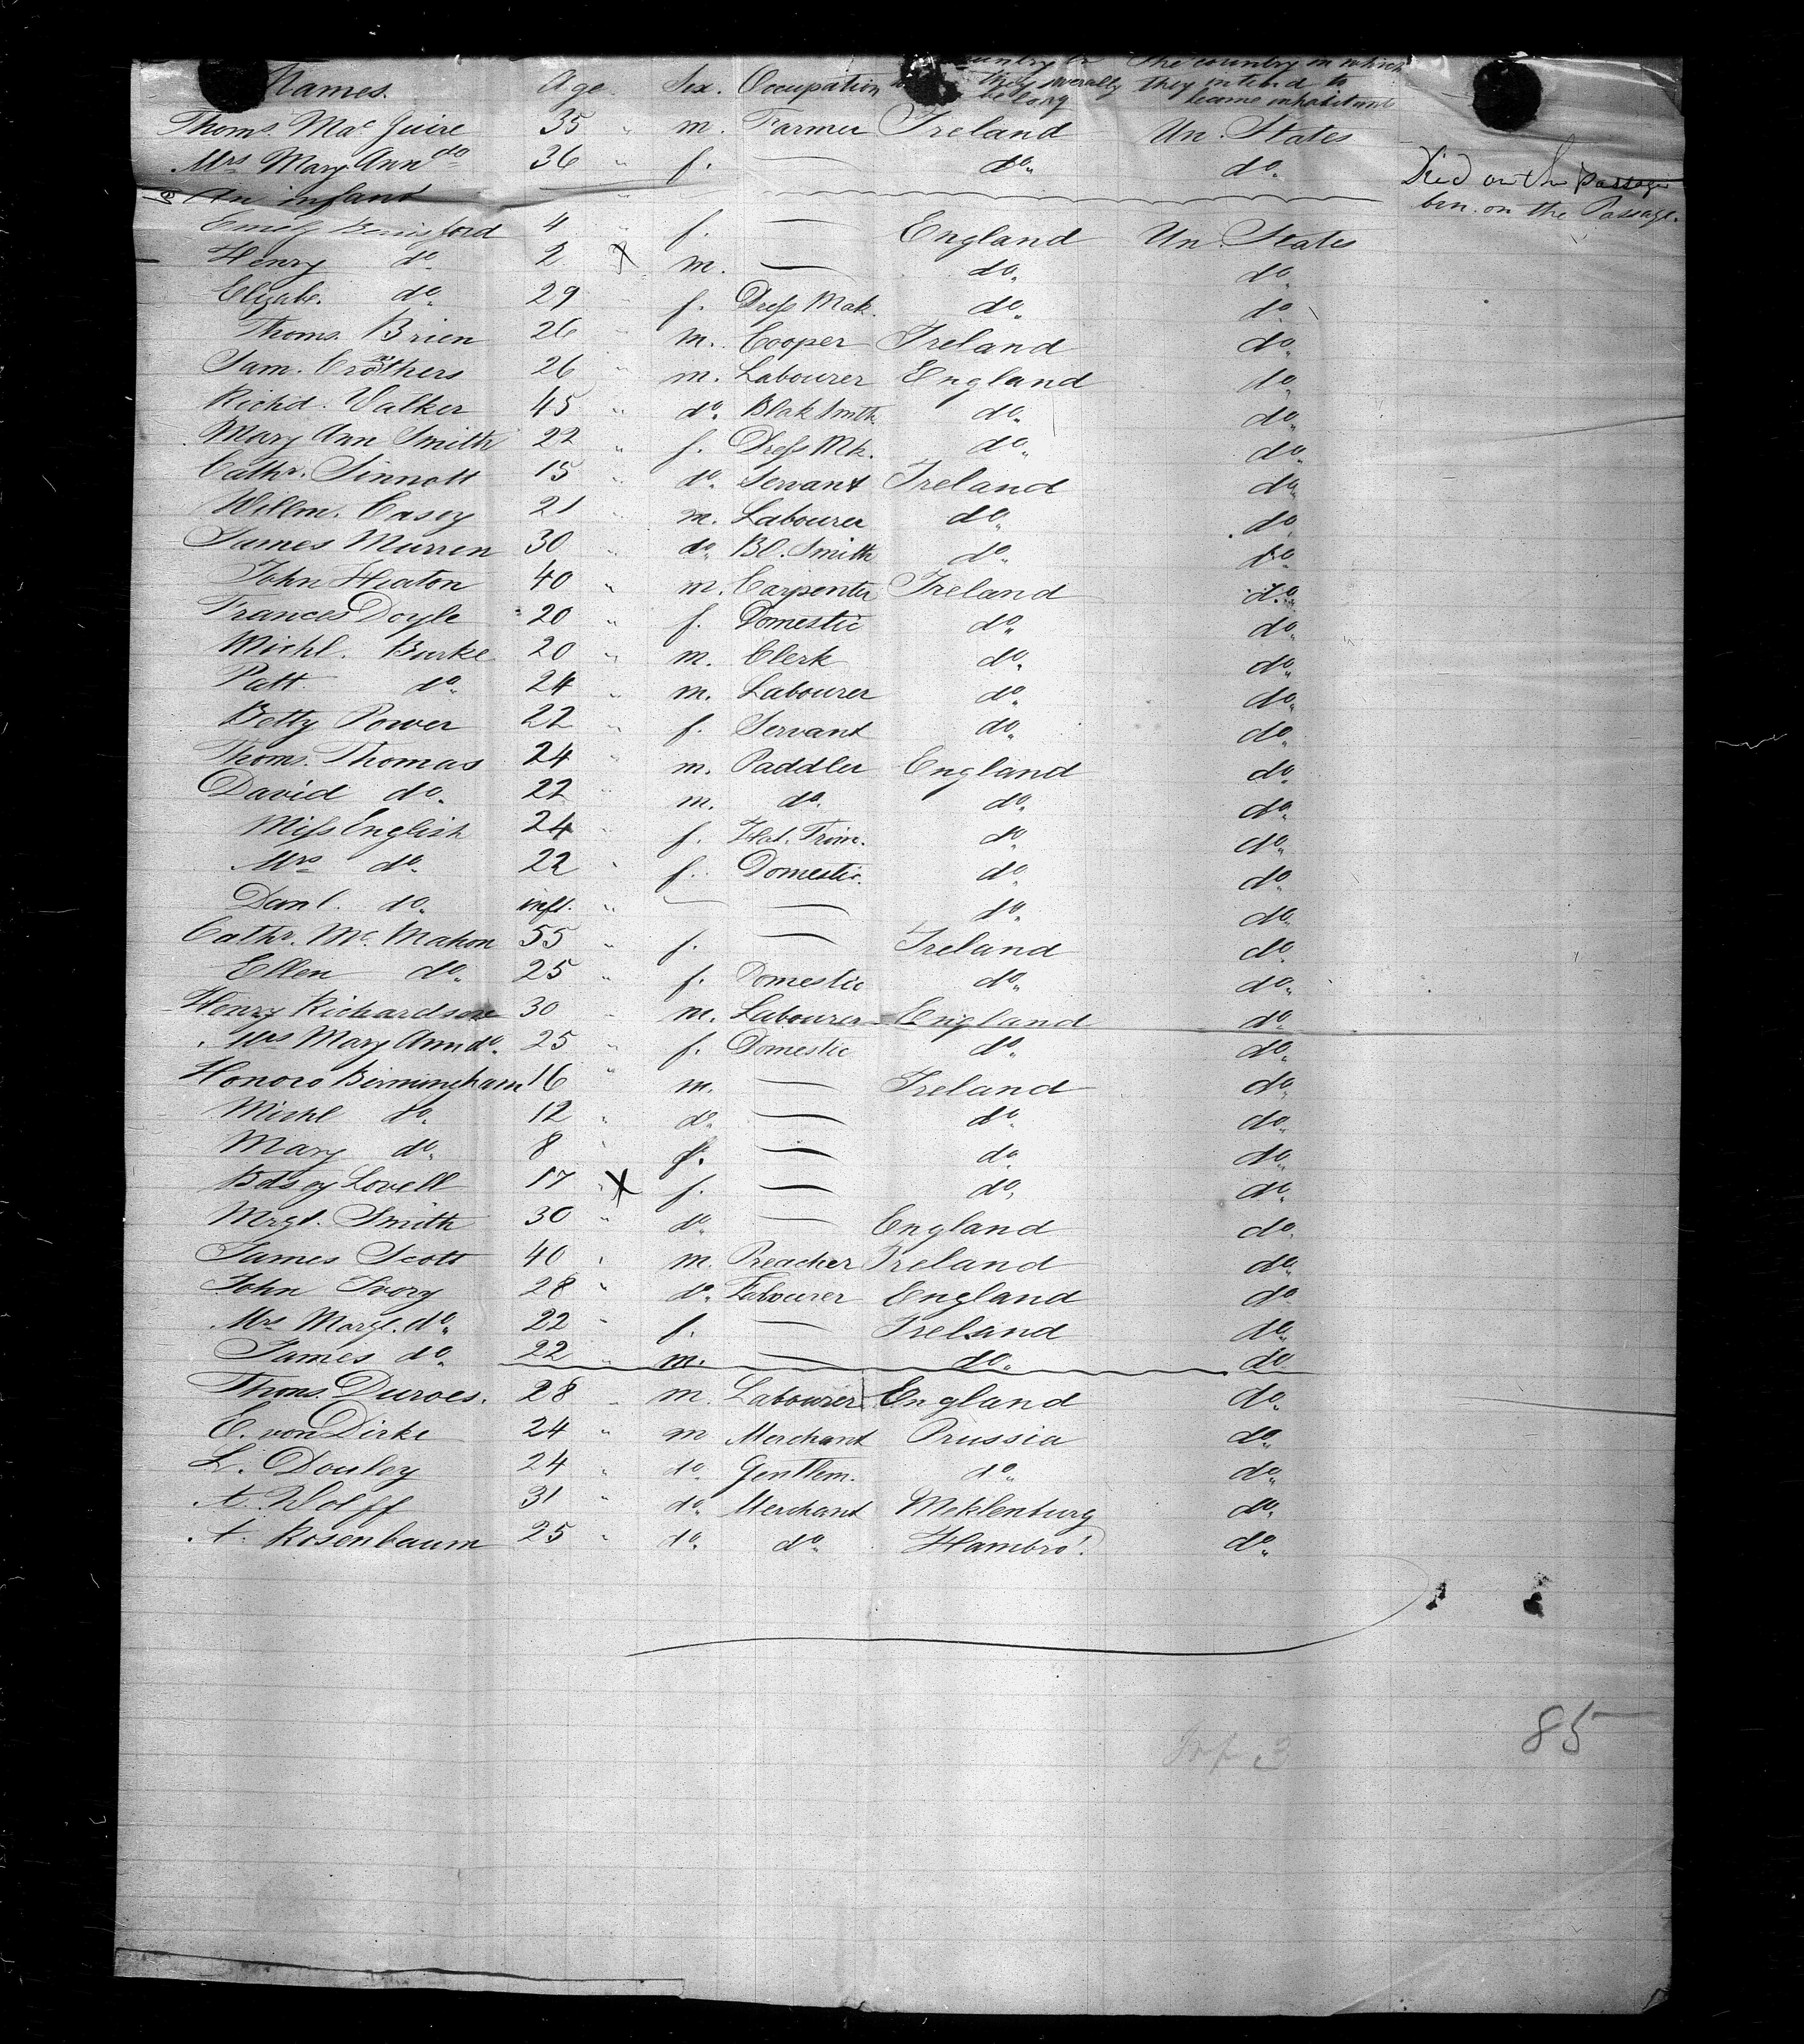 Names. Age. Sex. Occupation country to they severally belong The country in which they intend to become inhabitants
Thoms. Mac Guire 35 " m. Farmer Ireland Un. States
Mrs Mary Ann do 36 " f. — do. do. Died on the passage
An infant " born on the Passage.
Emely 4 " f. — England Un. States
Henry do. 2 X m. — do. do.
Elizabe. do. 29 " f. Dress Mak. do. do.
Thoms. Brien 26 " m. Cooper Ireland do.
Sam. Crothers 26 " m. Labourer England do.
Richd. Walker 45 " do. Blak Smith do. do.
Mary Ann Smith 22 " f. Dress Mk. do. do.
Cathr. Sinnott 15 " do. Servant Ireland do.
Willm. Casey 21 " m. Labourer do. do.
James Murren 30 " do. Bl. Smith do. do.
John Heaton 40 " m. Carpenter Ireland do.
Frances Doyle 20 " f. Domestic do. do.
Michl. Burke 20 " m. Clerk do. do.
Patt. do. 24 " m. Labourer do. do.
Betty Power 22 " f. Servant do. do.
Thoms. Thomas 24 " m. Paddler England do.
David do. 22 " m. do. do. do.
Miss English 24 " f. Hat. Trim. do. do.
Mrs do. 22 " f. Domestic. do. do.
Danl. do. inft. " — — do. do.
Cathr. Mc. Mahon 55 " f. — Ireland do.
Ellen do. 25 " f. Domestic do. do.
Henry Richardson 30 " m. Labourer England do.
Mrs Mary Ann do. 25 " f. Domestic do. do.
Honoro Birmingham 16 " m. — Ireland do.
Michl do. 12 " do. — do. do.
Mary do. 8 " f. — do. do.
Betsey Lovell 17 " X f. — do. do.
Mrgt. Smith 30 " do. — England do.
James Scott 40 " m. Preacher Ireland do.
John Ivory 28 " do. Labourer England do.
Mrs Margt. do. 22 " f. — Ireland do.
James do. 22 " m. — do. do.
Thoms. Duroes. 28 " m. Labourer England do.
E. von Dirke 24 " m Merchant Prussia do.
L. Douley 24 " do. Gentlem. do. do.
A. Wolff 31 " do. Merchant Meklenburg do.
A. Rosenbaum 25 " do. do. Hambro'. do.
85